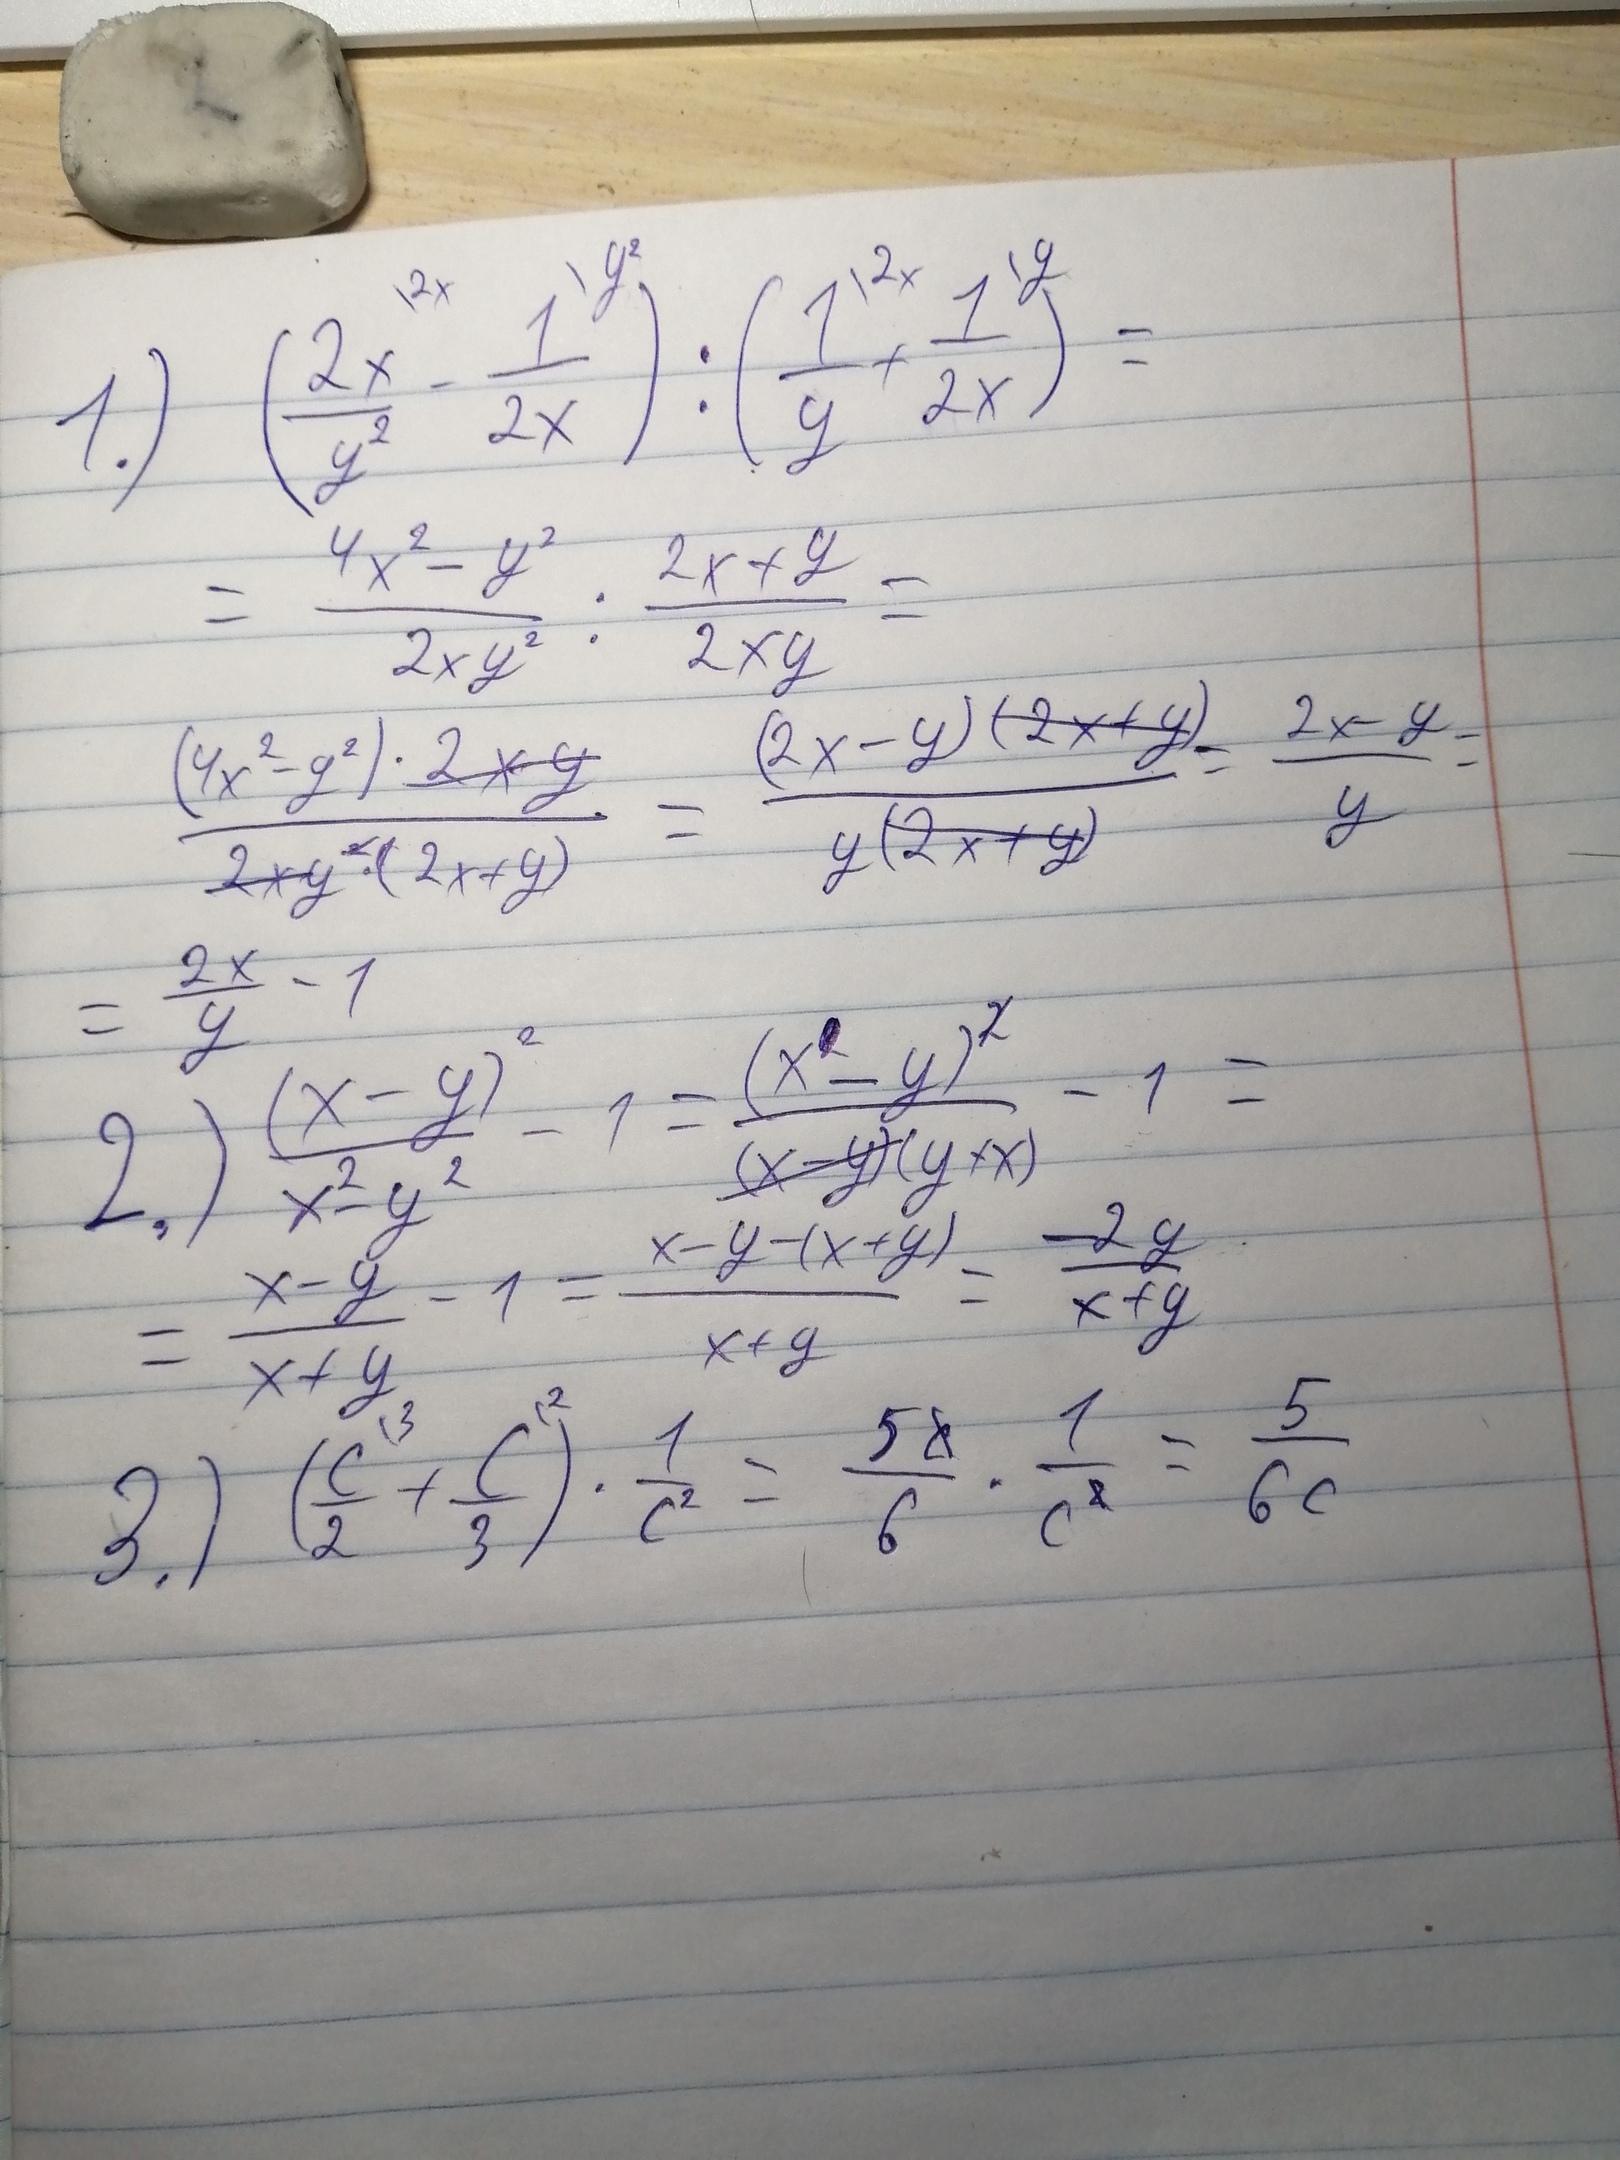 1.) (2x/y² \2x - 1/2x \y²) : (1/y \2x + 1/2x \y) =
= (4x² - y²)/(2xy²) : (2x + y)/(2xy) =
((4x² - y²) · 2xy)/(2xy² · (2x + y)) = ((2x - y)(2x + y))/(y(2x + y)) = (2x - y)/y =
= 2x/y - 1
2.) (x - y)²/(x² - y²) - 1 = (x - y)²/((x - y)(y + x)) - 1 =
= (x - y)/(x + y) - 1 = (x - y - (x + y))/(x + y) = -2y/(x + y)
3.) (c/2 \3 + c/3 \2) · 1/c² = 5c/6 · 1/c² = 5/6c